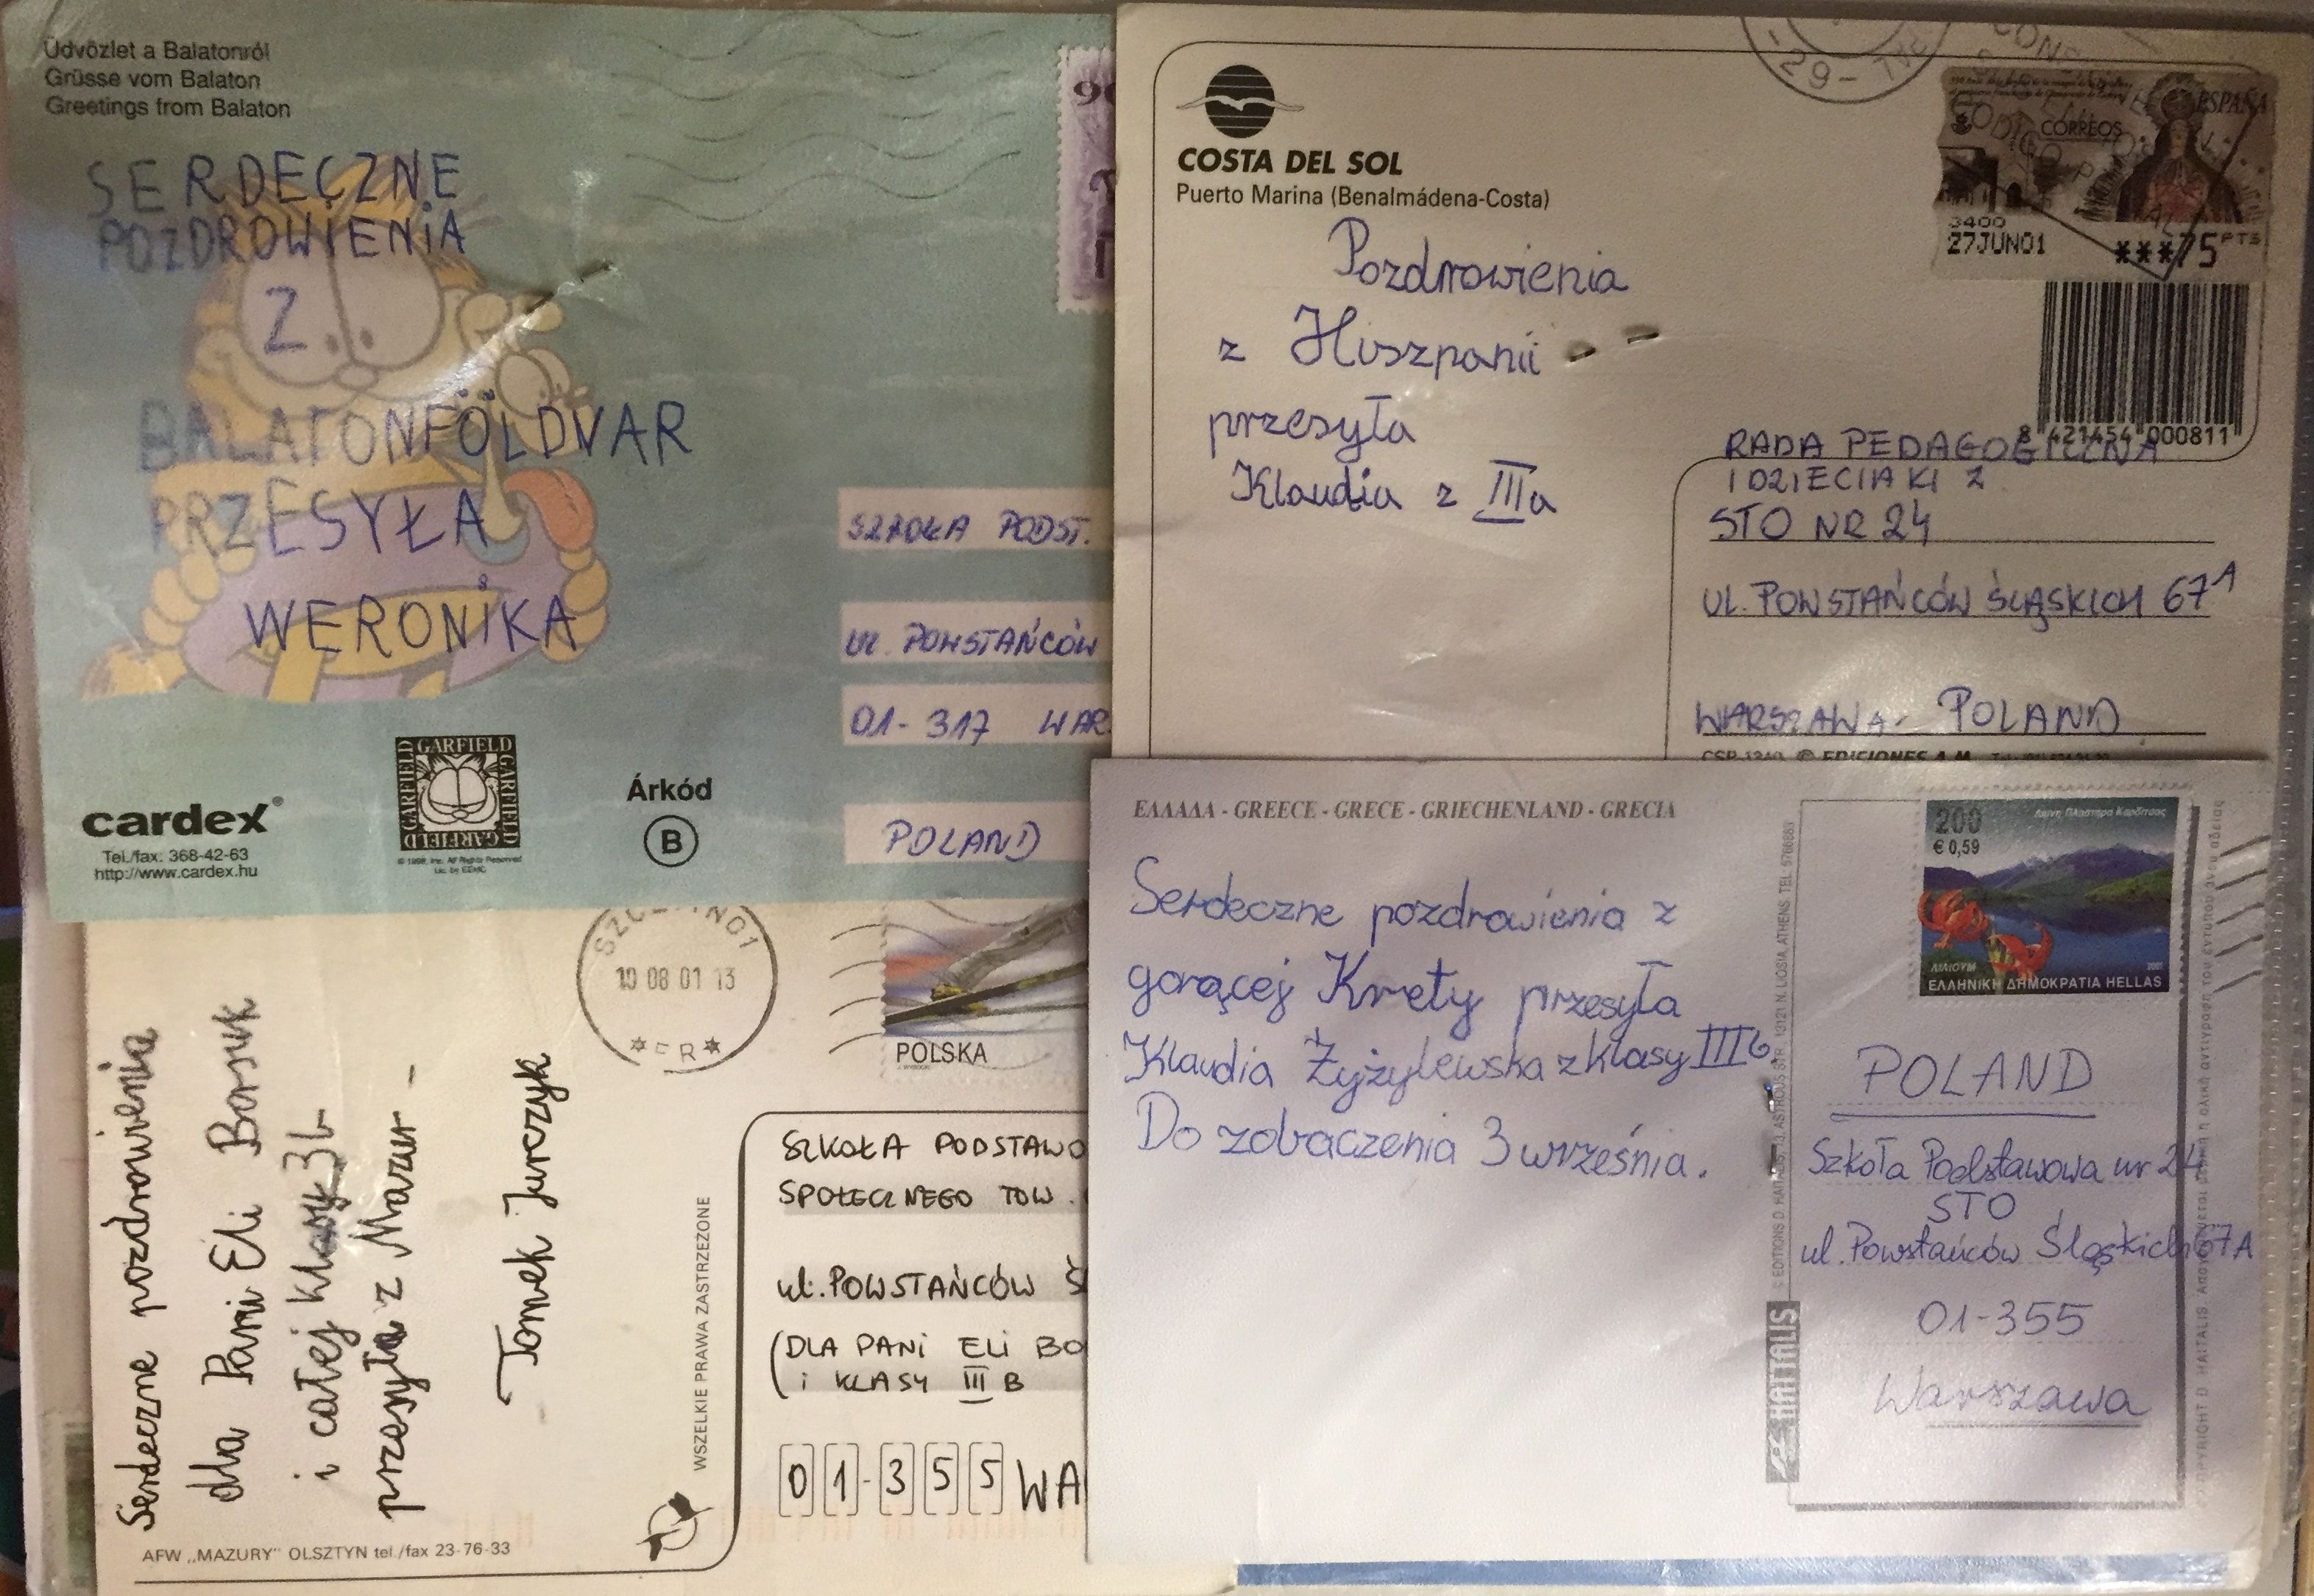 Üdvözlet a Balatonról
Grüsse vom Balaton
Greetings from Balaton
SERDECZNE
POZDROWIENIA
Z
BALATONFÖLDVAR
PRZESYŁA
WERONIKA
SZKOŁA PODST.
UL. POWSTAŃCÓW
01-317 WAR
POLAND
cardex®
Tel./fax: 368-42-63
http://www.cardex.hu
GARFIELD
GARFIELD
GARFIELD
GARFIELD
Árkód
B
COSTA DEL SOL
Puerto Marina (Benalmádena-Costa)
Pozdrowienia
z Hiszpanii
przesyła
Klaudia z IIIa
-29-
ESPAÑA
CORREOS
3400
27JUN01
***75 PTS
8 421454 000811
RADA PEDAGOGICZNA
I DZIECIAKI Z
STO NR 24
UL. POWSTAŃCÓW ŚLĄSKICH 67A
WARSZAWA - POLAND
© EDICIONES A.M.
10 08 01 13
POLSKA
Serdeczne pozdrowienia
dla Pani Eli Borsuk
i całej klasy 3b
przesyła z Mazur -
Tomek Jurczyk
WSZELKIE PRAWA ZASTRZEŻONE
AFW „MAZURY" OLSZTYN tel./fax 23-76-33
SZKOŁA PODSTAWO
SPOŁECZNEGO TOW.
ul. POWSTAŃCÓW Ś
(DLA PANI ELI BO
i KLASY III B
01-355 WA
ΕΛΛΑΔΑ - GREECE - GRECE - GRIECHENLAND - GRECIA
Serdeczne pozdrowienia z
gorącej Krety przesyła
Klaudia Żyżylewska z klasy IIIb
Do zobaczenia 3 września.
200
€ 0,59
Λίμνη Πλαστήρα Καρδίτσας
ΛΙΛΙΟΥΜ
2001
ΕΛΛΗΝΙΚΗ ΔΗΜΟΚΡΑΤΙΑ HELLAS
POLAND
Szkoła Podstawowa nr 24
STO
ul. Powstańców Śląskich 67A
01-355
Warszawa
HAITALIS